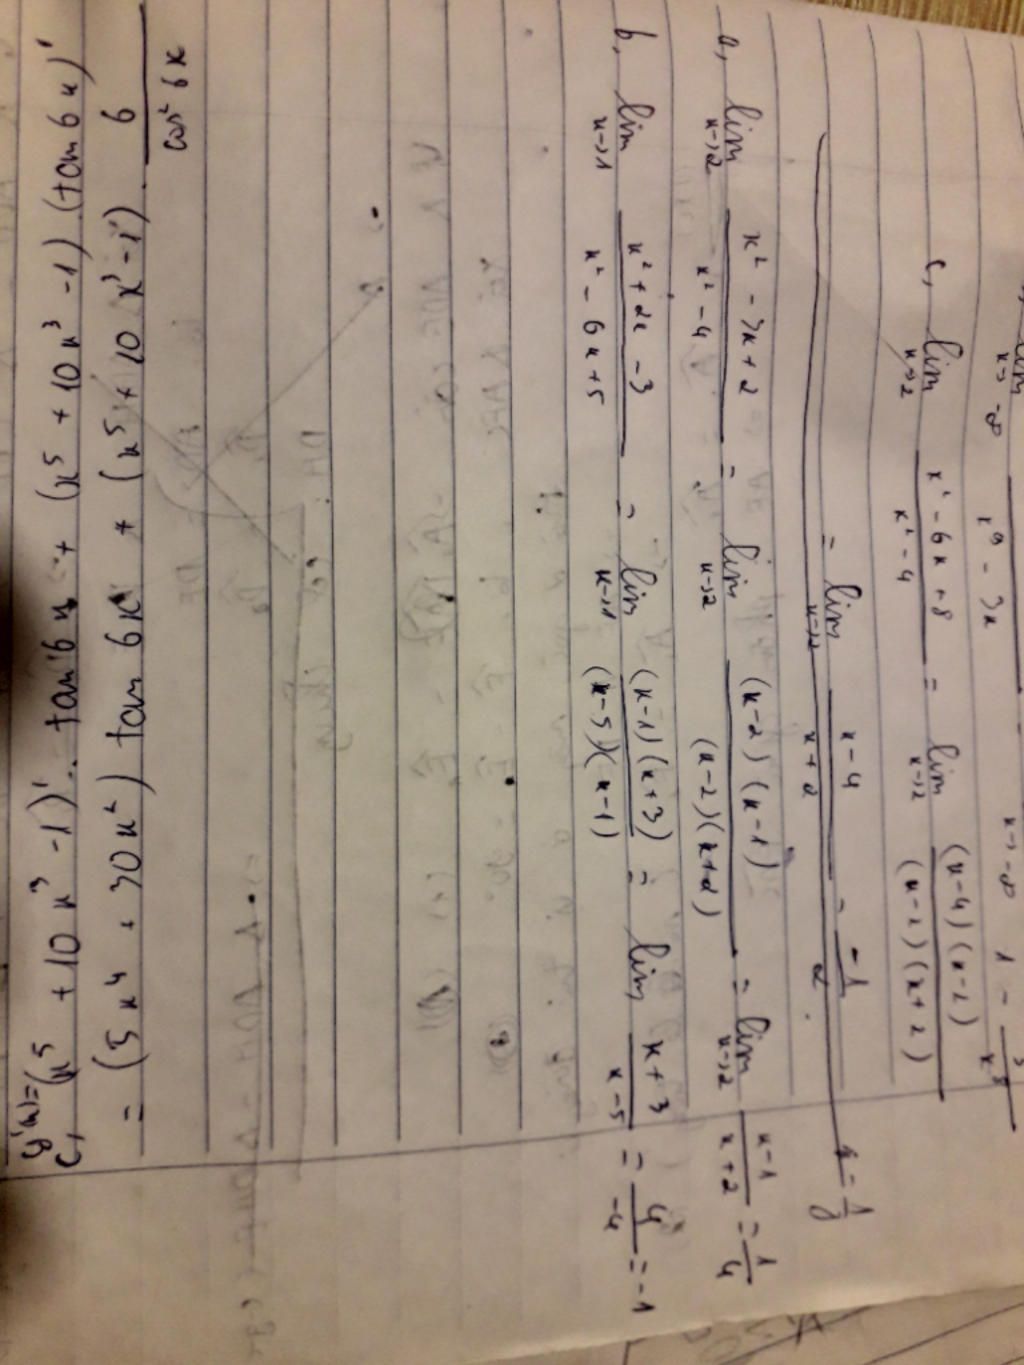 lim x→ -∞ x⁹ - 3x x→ -∞ 1 - 3/x⁸
c, lim x→2 (x² - 6x + 8)/(x² - 4) = lim x→2 (x-4)(x-2)/(x-2)(x+2)
= lim x→2 (x-4)/(x+2) = -1/2
a, lim x→2 (x² - 3x + 2)/(x² - 4) = lim x→2 (x-2)(x-1)/(x-2)(x+2) = lim x→2 (x-1)/(x+2) = 1/4
b, lim x→1 (x² + 2x - 3)/(x² - 6x + 5) = lim x→1 (x-1)(x+3)/(x-5)(x-1) = lim (x+3)/(x-5) = 4/-4 = -1
c, y'(x)= (x⁵ + 10x³ - 1)' . tan 6x + (x⁵ + 10x³ - 1) . (tan 6x)'
= (5x⁴ + 30x²) tan 6x + (x⁵ + 10x³ - 1) . 6/cos² 6x